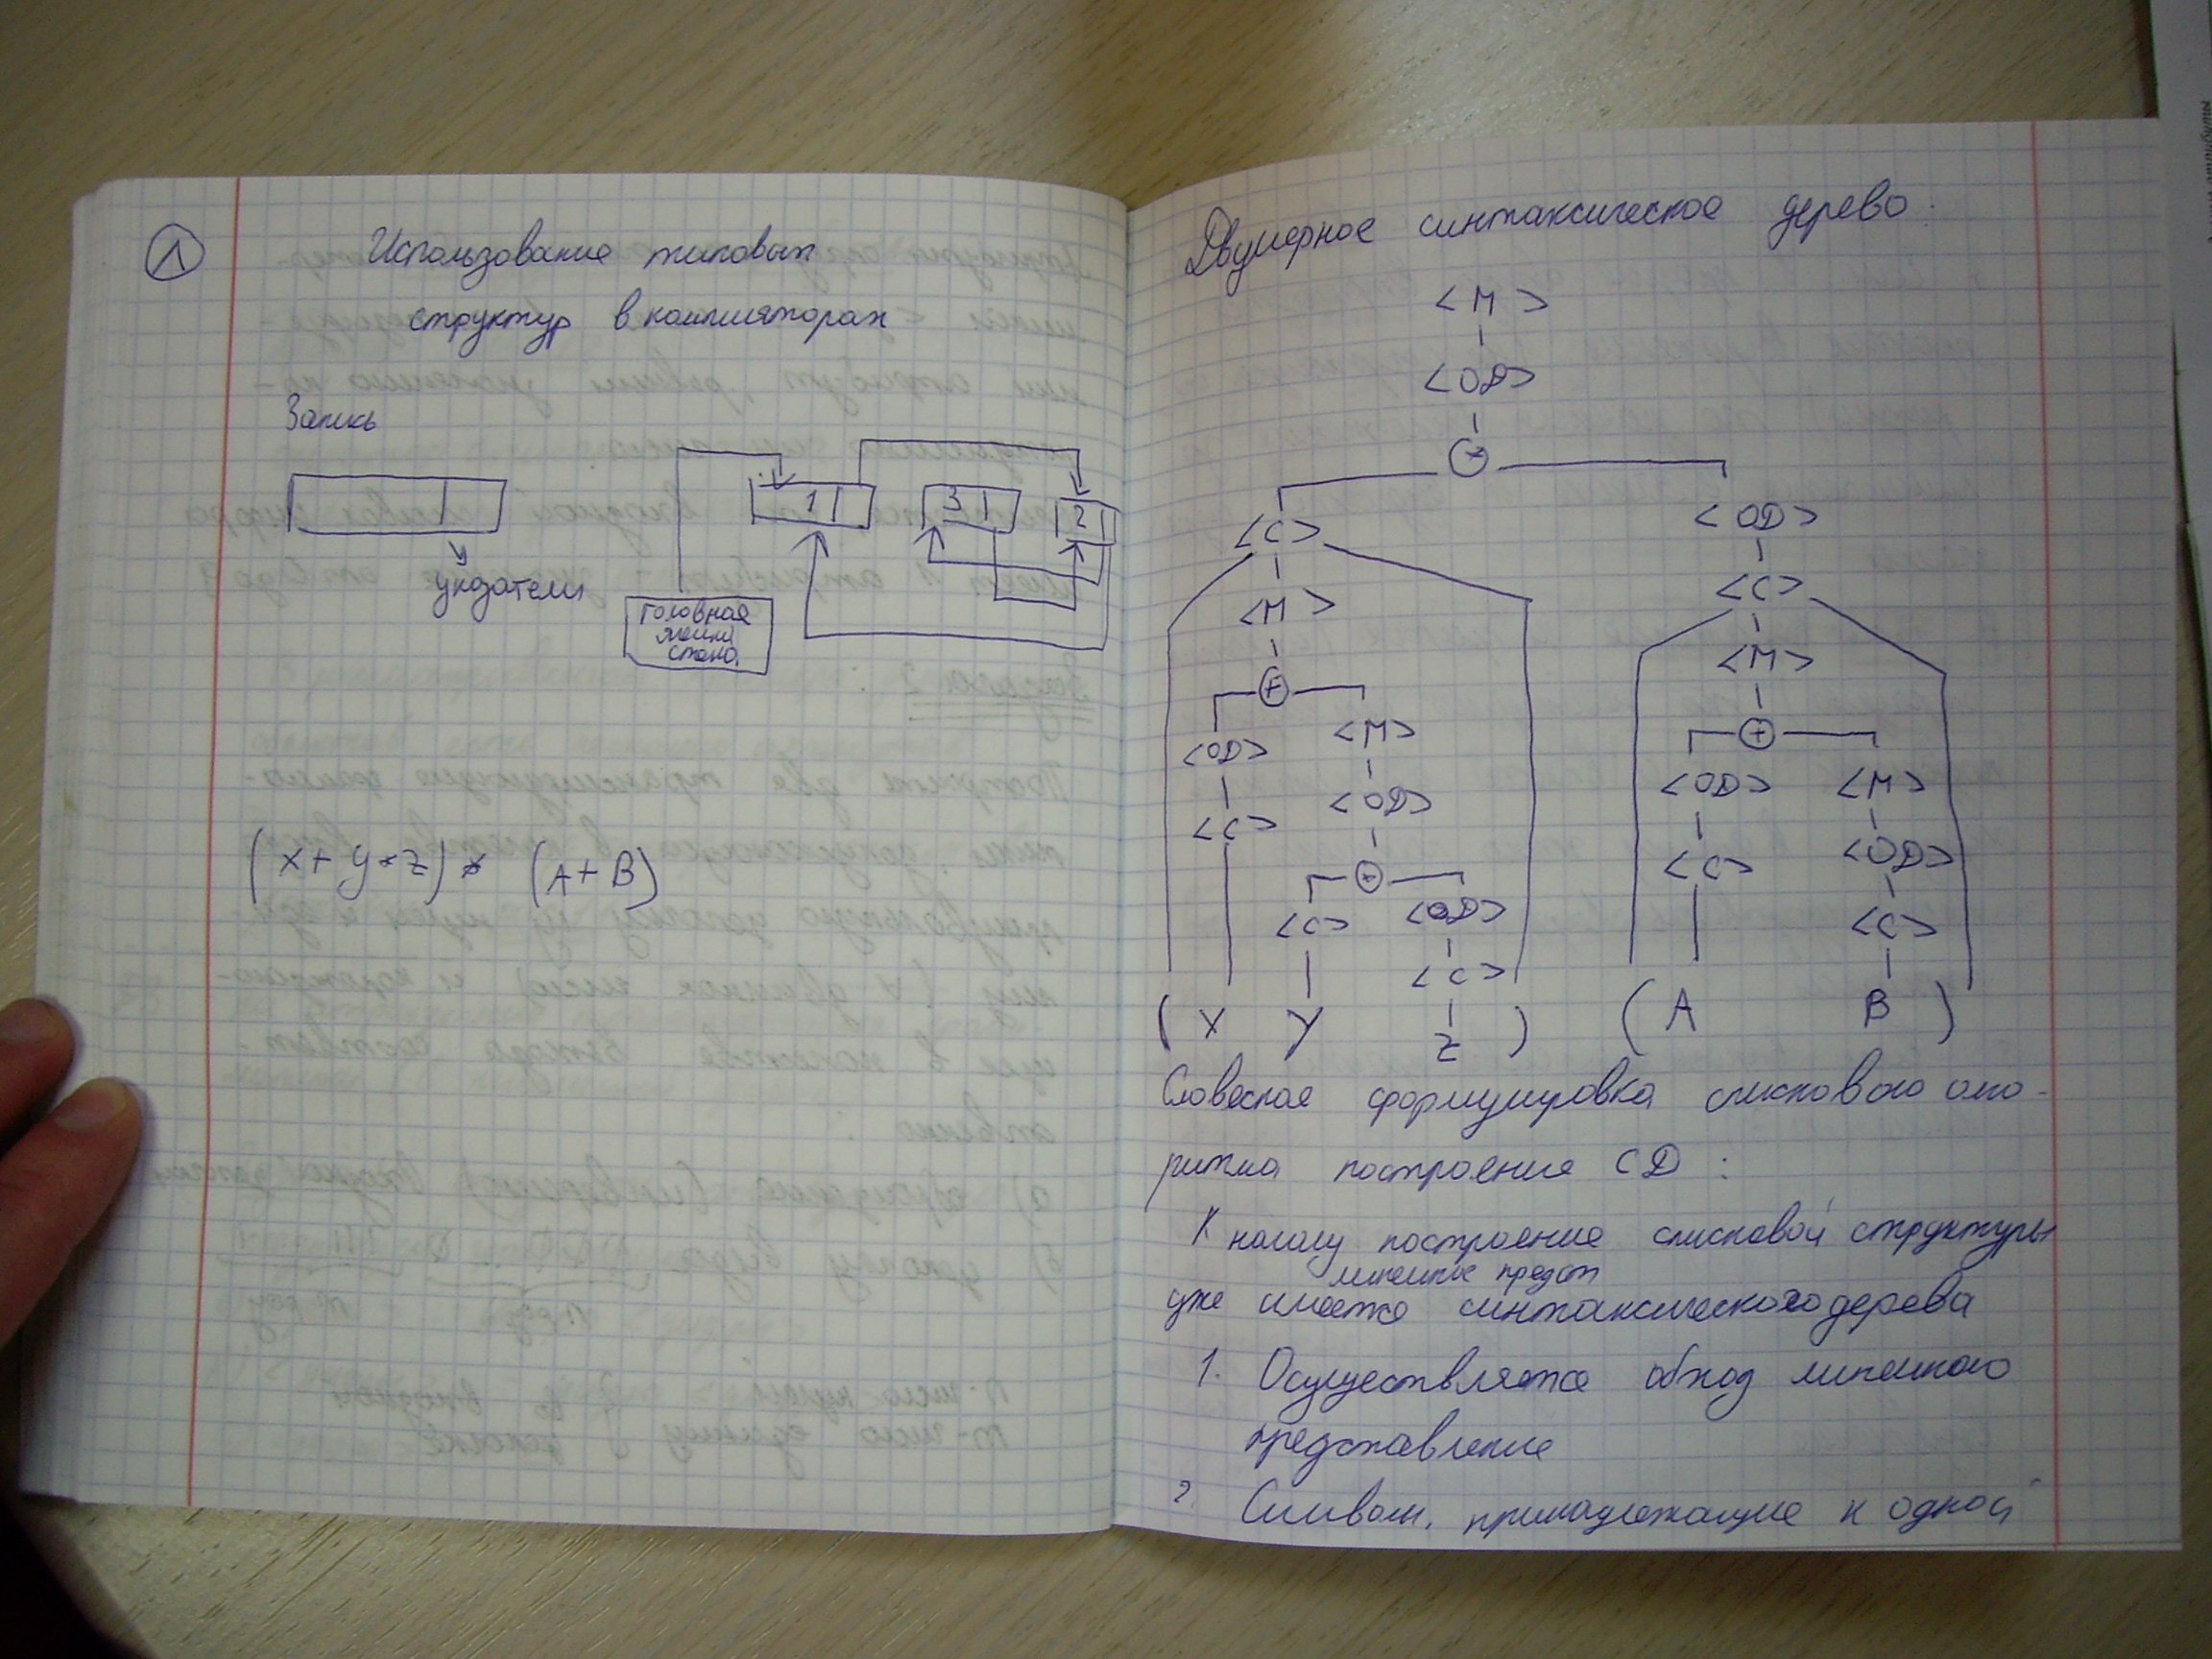 Л
Использование типовых
структур в компиляторах
Запись
указатели
1
3
2
Головная
ячейка
стека.
(x + y * z) * (A + B)
Двумерное синтаксическое дерево.
<М>
<ОД>
*
<С> <ОД>
<М> <С>
+ <М>
<ОД> <М> +
<С> <ОД> <ОД> <М>
* <С> <ОД>
<С> <ОД> <С>
<С>
( X Y Z ) ( A B )
Словесная формулировка спискового алго-
ритма построение СД :
К началу построение списковой структуры
линейное предст
уже имеется синтаксического дерева
1. Осуществляется обход линейного
представление
2. Символы, принадлежащие к одной